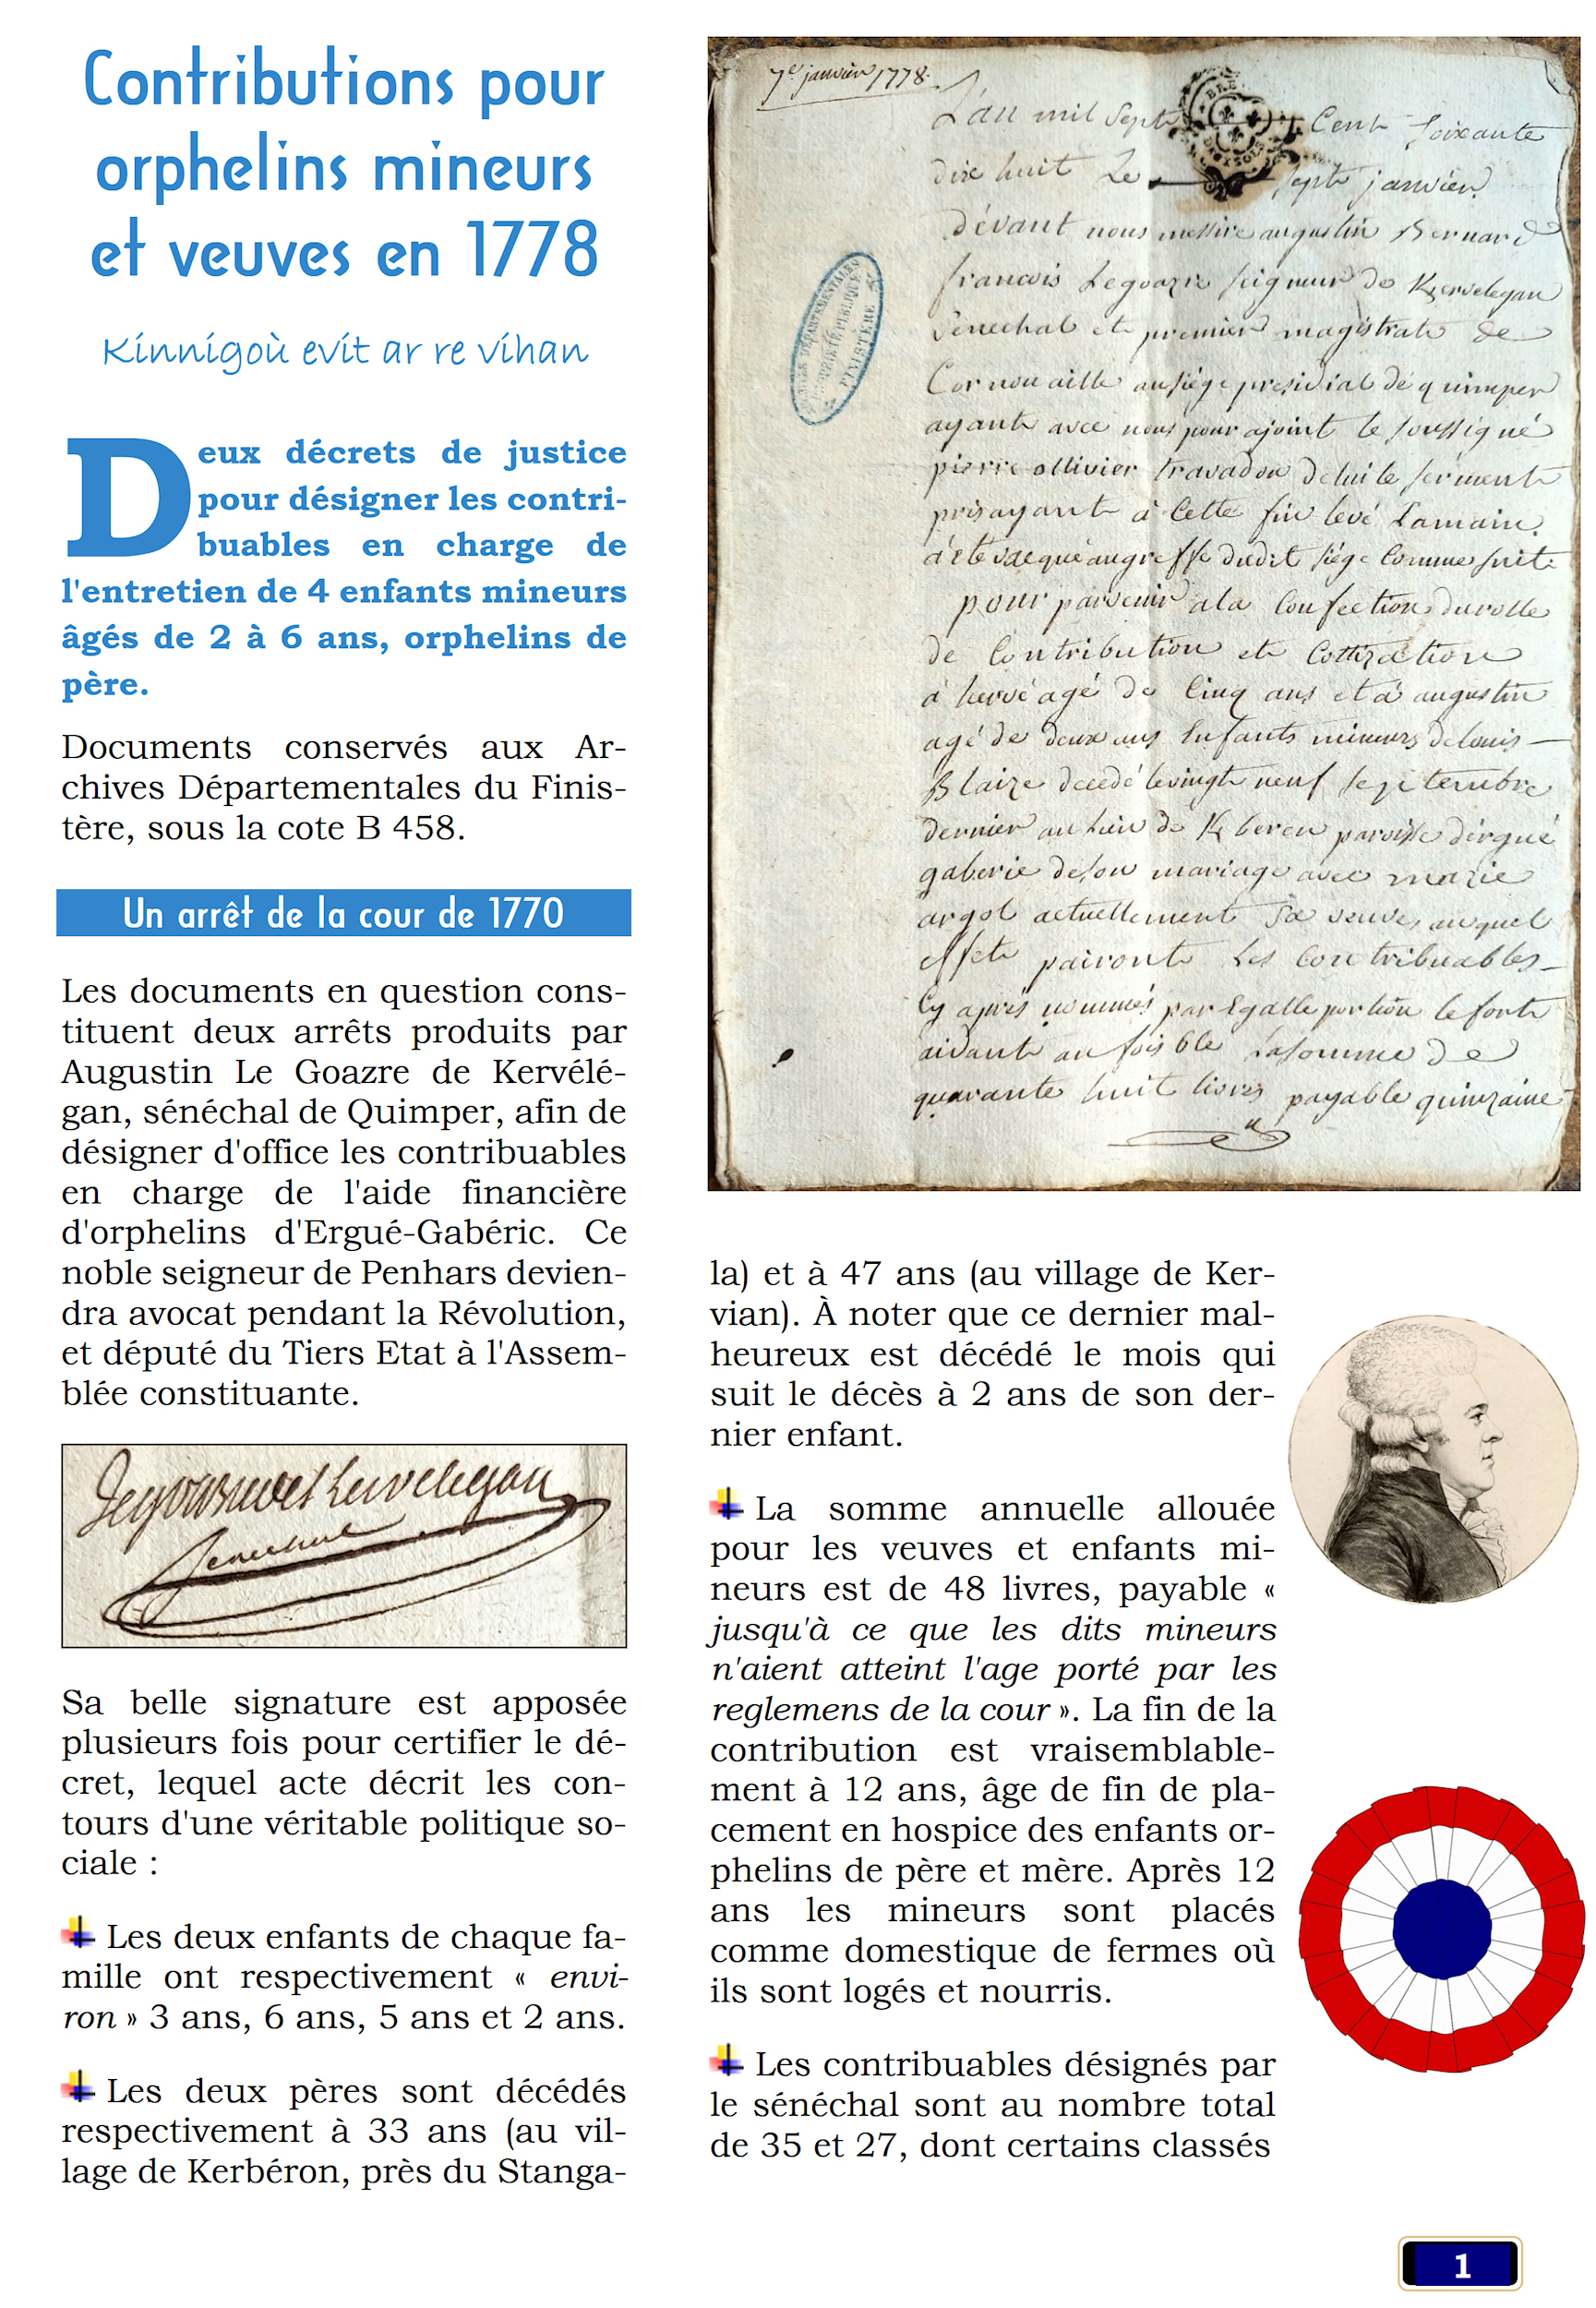 Contributions pour
orphelins mineurs
et veuves en 1778
Kinnigoù evit ar re vihan
Deux décrets de justice
pour désigner les contri-
buables en charge de
l'entretien de 4 enfants mineurs
âgés de 2 à 6 ans, orphelins de
père.
Documents conservés aux Ar-
chives Départementales du Finis-
tère, sous la cote B 458.
Un arrêt de la cour de 1770
Les documents en question cons-
tituent deux arrêts produits par
Augustin Le Goazre de Kervélé-
gan, sénéchal de Quimper, afin de
désigner d'office les contribuables
en charge de l'aide financière
d'orphelins d'Ergué-Gabéric. Ce
noble seigneur de Penhars devien-
dra avocat pendant la Révolution,
et député du Tiers Etat à l'Assem-
blée constituante.
Kervelegan
senechal
Sa belle signature est apposée
plusieurs fois pour certifier le dé-
cret, lequel acte décrit les con-
tours d'une véritable politique so-
ciale :
Les deux enfants de chaque fa-
mille ont respectivement « envi-
ron » 3 ans, 6 ans, 5 ans et 2 ans.
Les deux pères sont décédés
respectivement à 33 ans (au vil-
lage de Kerbéron, près du Stanga-
7e janvier 1778.
L'an mil sept Cent soixante
dix huit Le sept janvier
devant nous messire augustin Bernard
francois Legoazre seigneur de Kervelegan
Senechal et premier magistrat de
Cornouaille au siége presidial de quimper
ayant avec nous pour ajoint le soussigné
pierre ollivier travadon de lui le serment
pris ayant à cette fin levé la main
a été vacqué au greffe dudit siége comme suit
pour parvenir a la confection du rolle
de Contribution et cottization
à hervé agé de Cinq ans et à augustin
agé de deux ans Enfants mineurs de louis
Blaize decedé le vingt neuf septembre
dernier au lieu de Kberen paroisse d'ergué
gaberic de son mariage avec marie
argol actuellement sa veuve, auquel
effet pairont les contribuables
Cy après nommés par Egalle portion le fort
aidant au foible la somme de
quarante huit livres payable quinzaine
la) et à 47 ans (au village de Ker-
vian). À noter que ce dernier mal-
heureux est décédé le mois qui
suit le décès à 2 ans de son der-
nier enfant.
La somme annuelle allouée
pour les veuves et enfants mi-
neurs est de 48 livres, payable «
jusqu'à ce que les dits mineurs
n'aient atteint l'age porté par les
reglemens de la cour ». La fin de la
contribution est vraisemblable-
ment à 12 ans, âge de fin de pla-
cement en hospice des enfants or-
phelins de père et mère. Après 12
ans les mineurs sont placés
comme domestique de fermes où
ils sont logés et nourris.
Les contribuables désignés par
le sénéchal sont au nombre total
de 35 et 27, dont certains classés
1